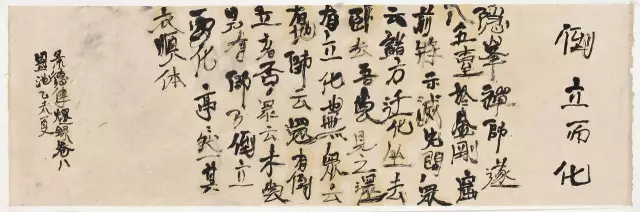 倒立而化
隐峯禪师遂
入五臺於金剛窟
前将示滅先問眾
云諸方迁化坐去
卧去吾嘗見之還
有立化也無眾云
有也师云還有倒
立者否眾云未嘗
見有师乃倒立
而化亭亭然其
衣順体
景德传燈錄卷八
乙未夏